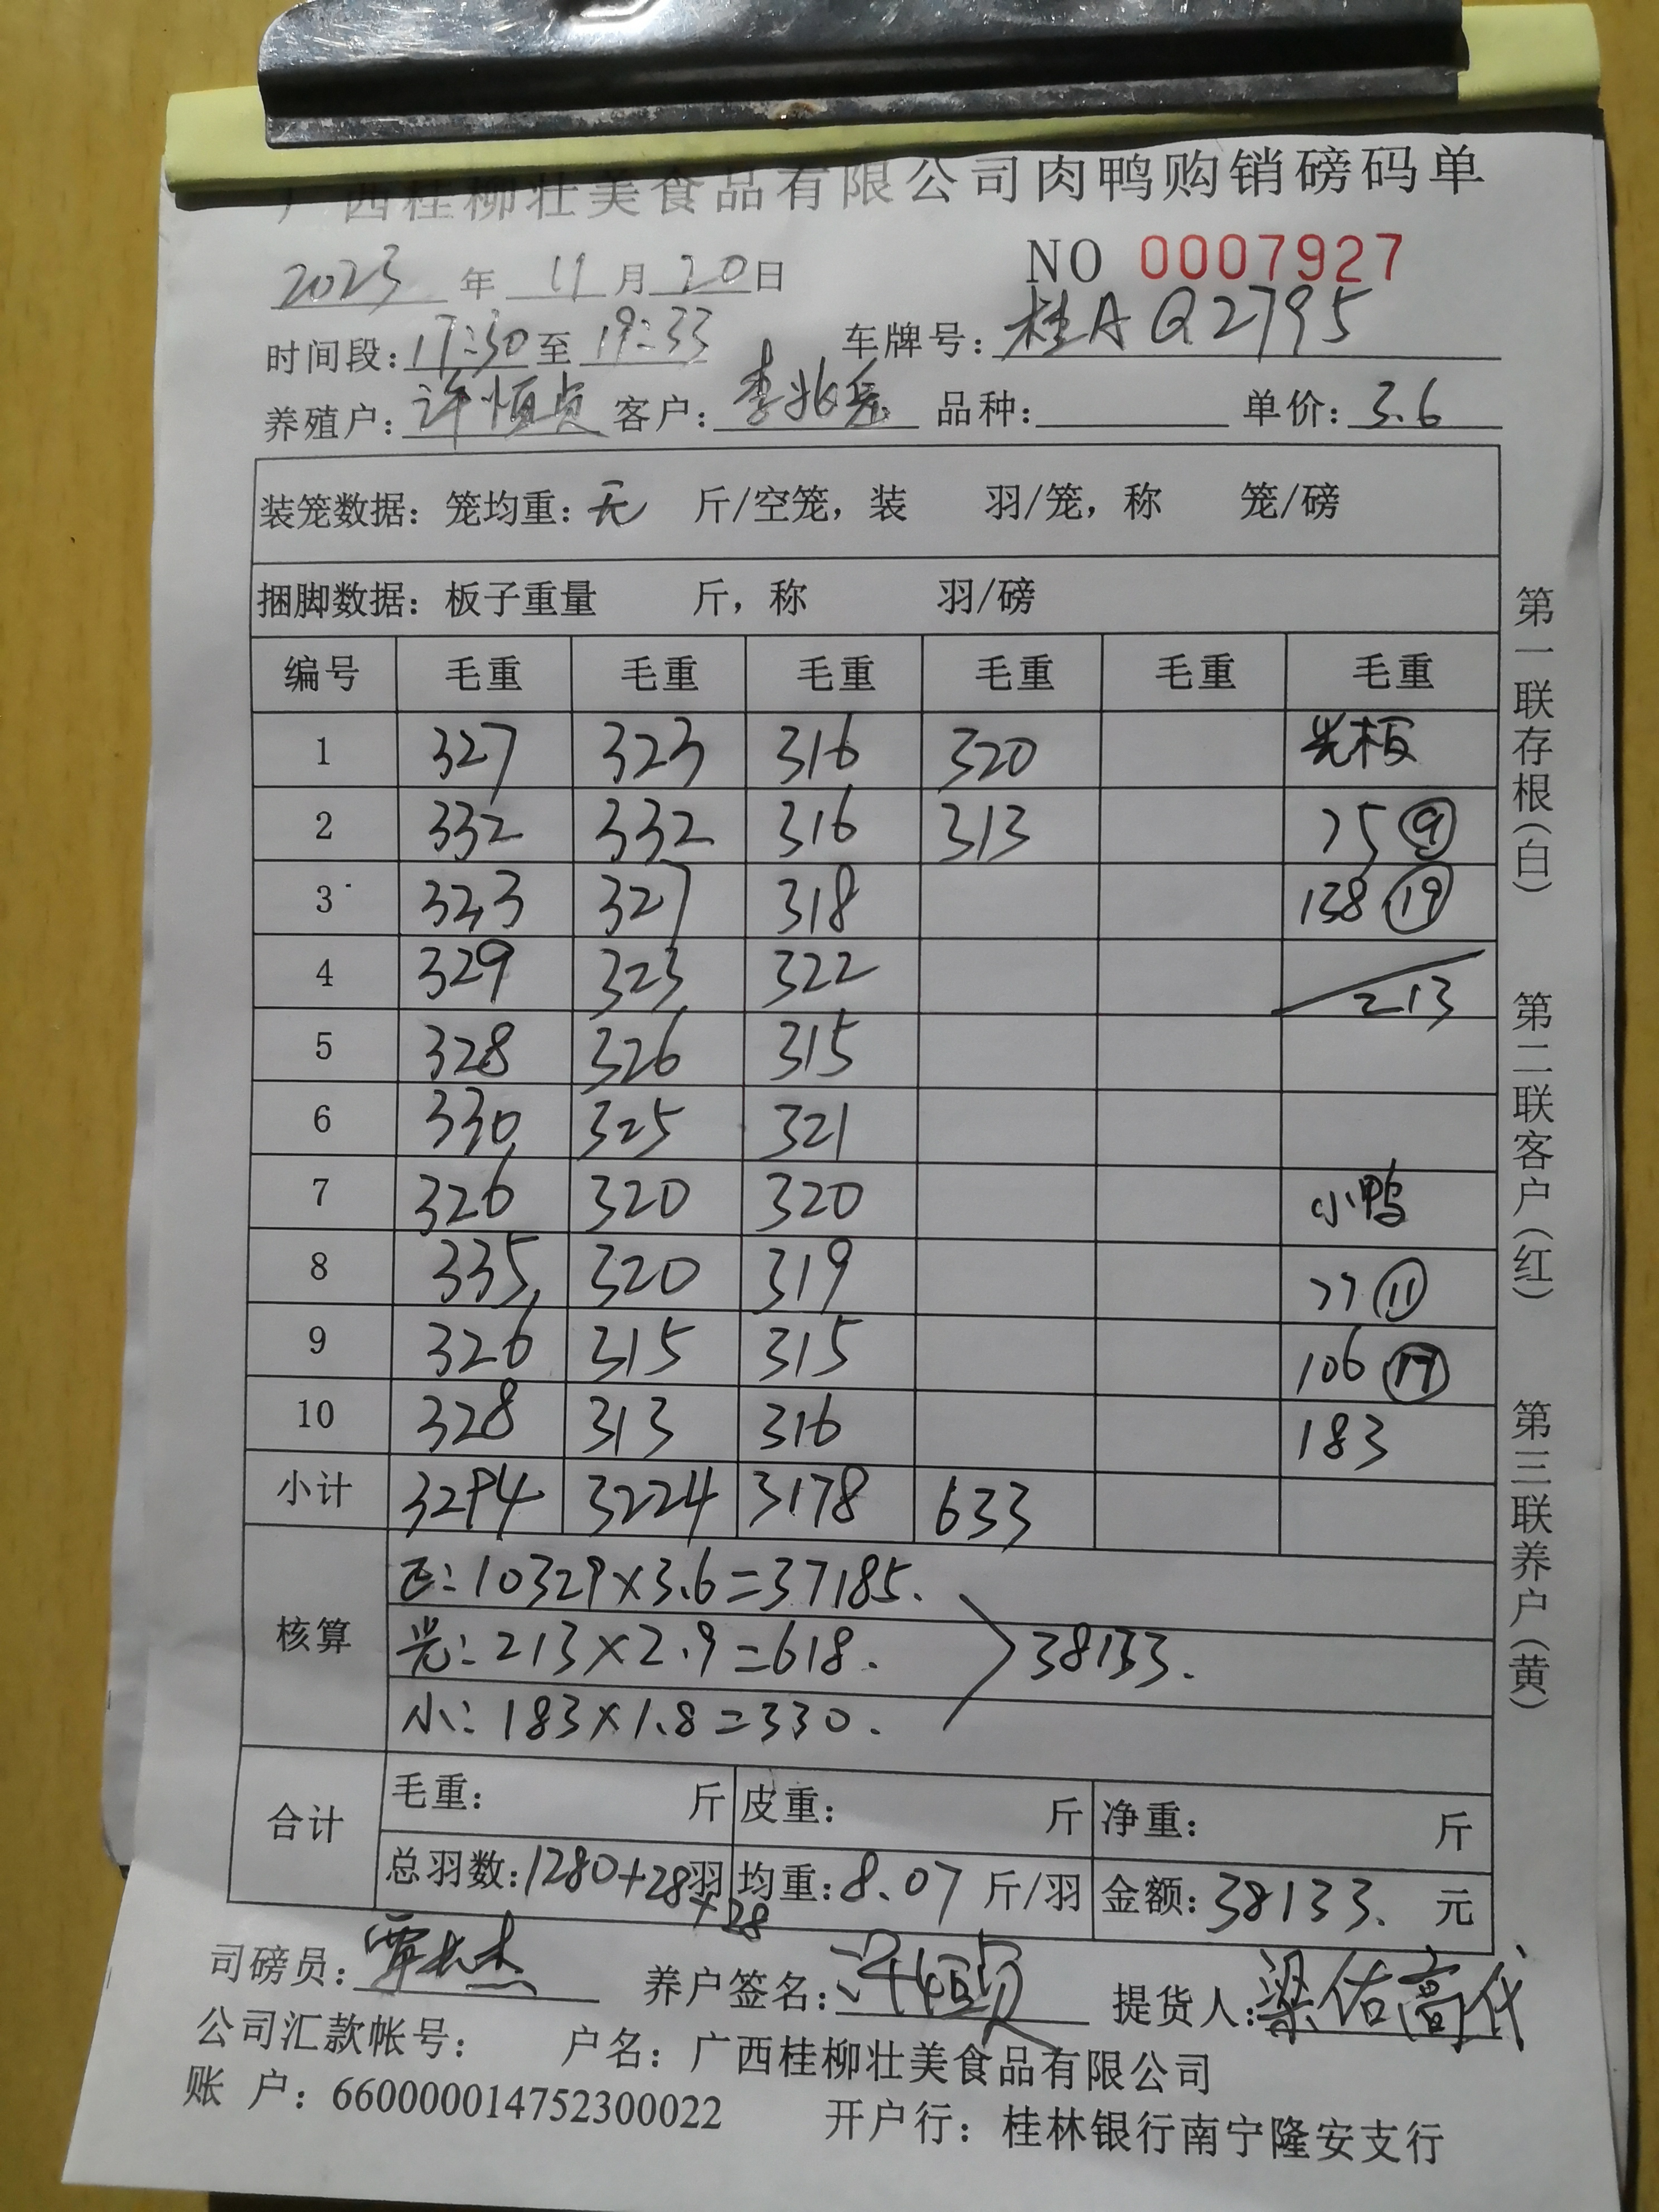 广西桂柳壮美食品有限公司肉鸭购销磅码单
2023 年 11 月 20 日 NO 0007927
时间段: 17:30 至 19:33 车牌号: 桂A Q2795
养殖户: 许恒贞 客户: 李兆 品种: 单价: 3.6
装笼数据: 笼均重: 无 斤/空笼, 装 羽/笼, 称 笼/磅
捆脚数据: 板子重量 斤, 称 羽/磅
编号 毛重 毛重 毛重 毛重 毛重 毛重
1 327 323 316 320 光板
2 332 332 316 313 75 ⑨
3 323 327 318 138 ⑲
4 329 323 322 213
5 328 326 315
6 330 325 321
7 326 320 320 小鸭
8 335 320 319 77 ⑪
9 326 315 315 106 ⑰
10 328 313 316 183
小计 3294 3224 3178 633
核算
正: 10329×3.6=37185.
光: 213×2.9=618. 38133.
小: 183×1.8=330.
合计 毛重: 斤 皮重: 斤 净重: 斤
总羽数: 1280+28羽 均重: 8.07 斤/羽 金额: 38133. 元
+28
司磅员: 养户签名: 许恒贞 提货人: 梁佑高代
公司汇款帐号: 户名: 广西桂柳壮美食品有限公司
账 户: 660000014752300022 开户行: 桂林银行南宁隆安支行
第一联存根(白) 第二联客户(红) 第三联养户(黄)